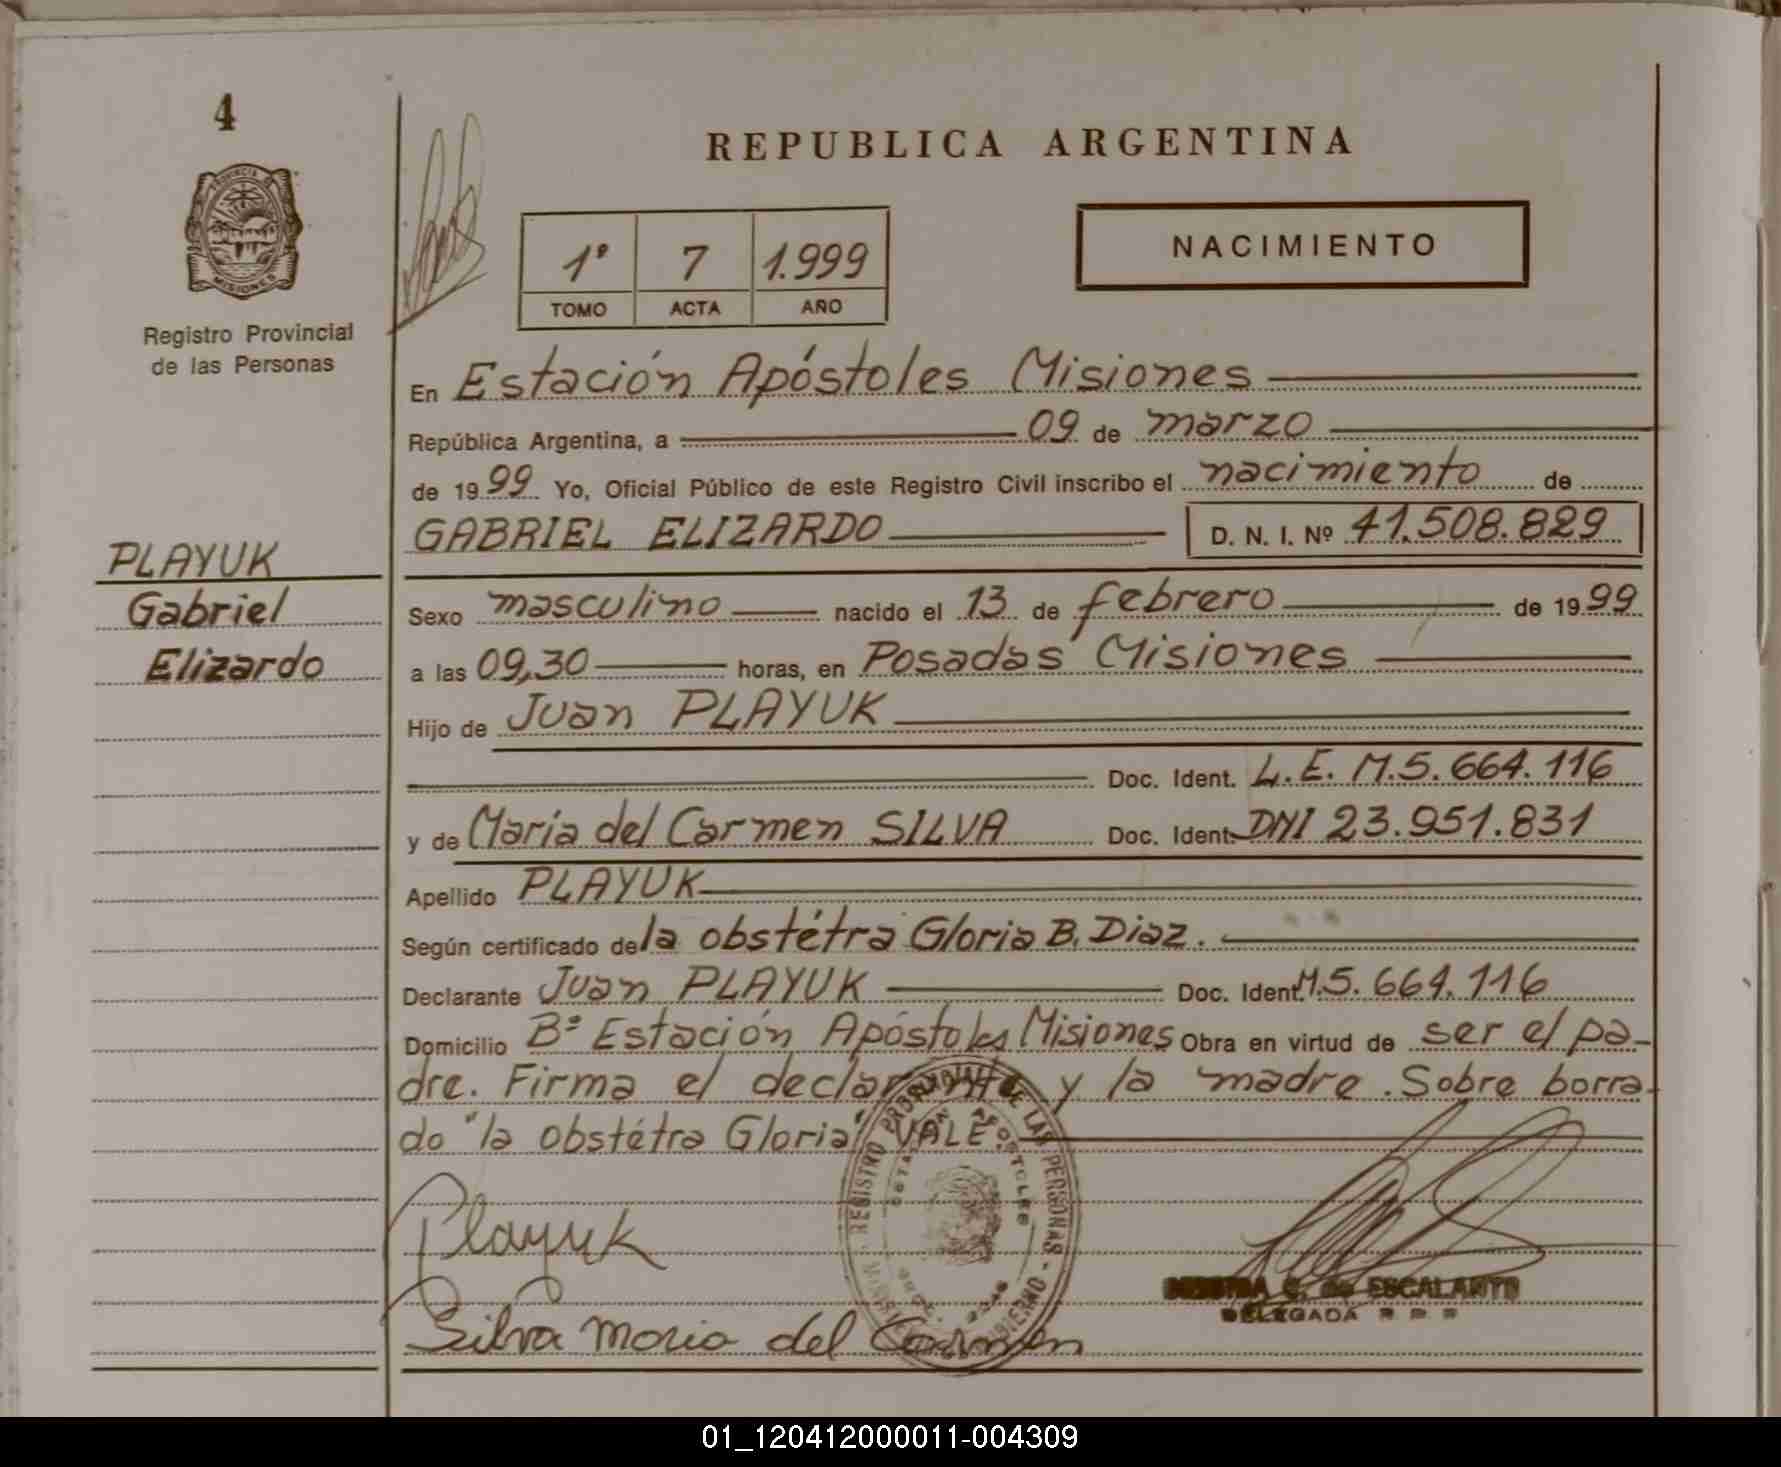 4
PROVINCIA DE
MISIONES
Registro Provincial
de las Personas
PLAYUK
Gabriel
Elizardo
REPUBLICA ARGENTINA
1º 7 1.999
TOMO ACTA AÑO
NACIMIENTO
En Estación Apóstoles Misiones
República Argentina, a 09 de marzo
de 1999 Yo, Oficial Público de este Registro Civil inscribo el nacimiento de
GABRIEL ELIZARDO D. N. I. Nº 41.508.829
Sexo masculino nacido el 13 de febrero de 1999
a las 09,30 horas, en Posadas Misiones
Hijo de Juan PLAYUK
Doc. Ident. L.E. M.5.664.116
y de María del Carmen SILVA Doc. Ident. DNI 23.951.831
Apellido PLAYUK
Según certificado de la obstétra Gloria B. Diaz.
Declarante Juan PLAYUK Doc. Ident. M.5.664.116
Domicilio Bº Estación Apóstoles Misiones Obra en virtud de ser el pa-
dre. Firma el declarante y la madre. Sobre borra-
do "la obstétra Gloria" VALE.
REGISTRO PROVINCIAL DE LAS PERSONAS
ESTACION APOSTOLES
Playuk
C. de ESCALANTE
DELEGADA R P P
Silva Maria del Carmen
01_120412000011-004309